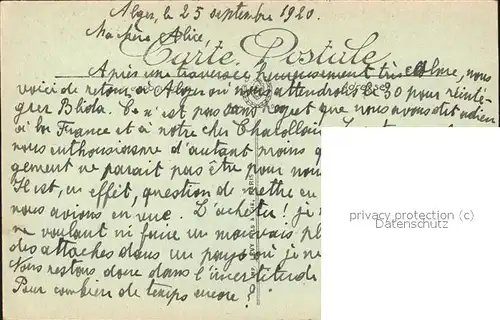 Alger, le 25 septembre 1920.
Ma chère Alice,
Carte Postale
Après une traversée heureusement très calme, nous
voici de retour à Alger où nous attendrons le 30 pour réinté-
grer Blida. Ce n'est pas sans regret que nous avons dit adieu
à la France et à notre cher Charollais
nous enthousiasme d'autant moins q
gement ne parait pas être pour nou
Il est, en effet, question de mettre en
nous avions en vue. L'acheter! je
ne voulant ni faire un mauvais pl
des attaches dans un pays où je ne
Nous restons donc dans l'incertitude
Pour combien de temps encore?
privacy protection (GDPR)
Datenschutz